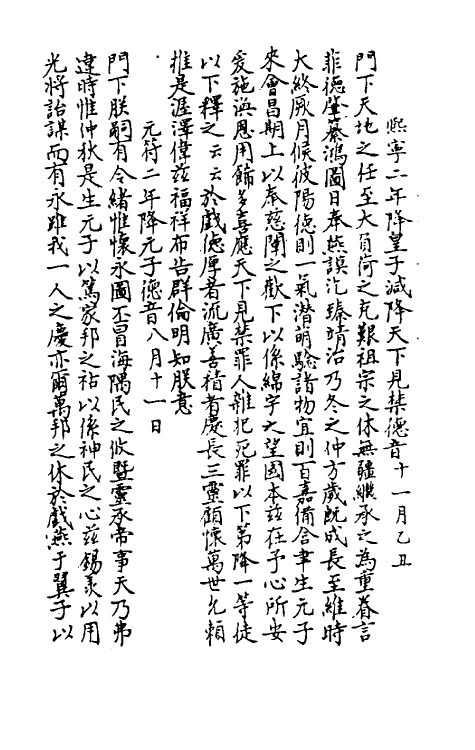 熙寧二年降皇子減降天下見禁德音十一月乙丑
門下天地之任至大負荷之充艱祖宗之休無疆繼承之為重眷言
菲德肇纂鴻圖日奉燕謨汔臻靖治乃冬之仲方歲既成長至維時
大終厥月候彼陽德則一氣潛萌驗諸物宜則百嘉備合聿生元子
來會昌期上以奉慈闈之歡下以係綿宇之望國本茲在予心所安
爰施渙恩用飾多喜應天下見禁罪人雜犯死罪以下第降一等徒
以下釋之云云於戲德厚者流廣善積者慶長三靈顧懷萬世允賴
推是渥澤偉茲福祥布告群倫明知朕意
元符二年降元子德音八月十一日
門下朕嗣有令緒惟懷永圖丕冒海隅民之攸暨靈承帝事天乃弗
違時惟仲秋是生元子以篤家邦之祜以係神民之心茲錫羨以用
光將詒謀而有永雖我一人之慶亦爾萬邦之休於戲燕于翼子以